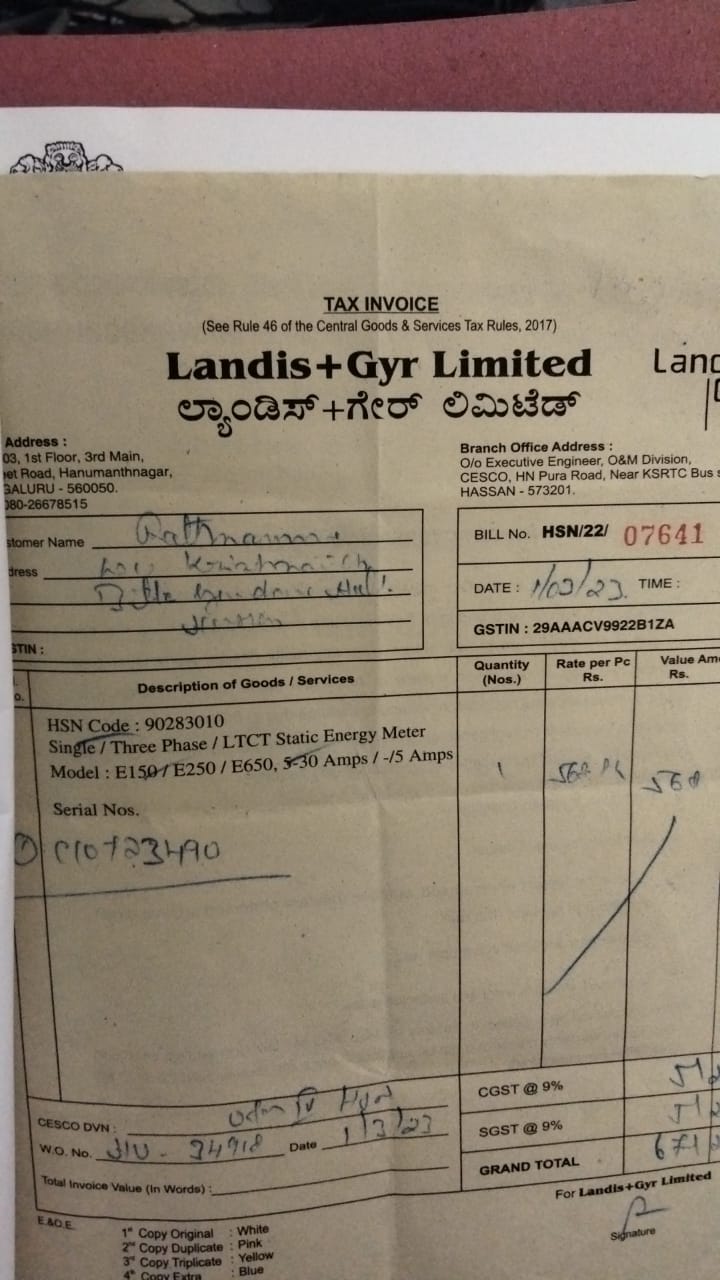 TAX INVOICE
(See Rule 46 of the Central Goods & Services Tax Rules, 2017)
Landis+Gyr Limited
Land
ಲ್ಯಾಂಡಿಸ್+ಗೇರ್ ಲಿಮಿಟೆಡ್
Address :
03, 1st Floor, 3rd Main,
et Road, Hanumanthnagar,
GALURU - 560050.
080-26678515
Branch Office Address :
O/o Executive Engineer, O&M Division,
CESCO, HN Pura Road, Near KSRTC Bus s
HASSAN - 573201.
stomer Name
dress
STIN :
BILL No. HSN/22/ 07641
DATE : 1/03/23. TIME :
GSTIN : 29AAACV9922B1ZA
Description of Goods / Services
Quantity (Nos.)
Rate per Pc Rs.
Value Am Rs.
HSN Code : 90283010
Single / Three Phase / LTCT Static Energy Meter
Model : E150 / E250 / E650, 5-30 Amps / -/5 Amps
1 568 568
Serial Nos.
CESCO DVN :
W.O. No. Date 1/3/23
Total Invoice Value (In Words) :
CGST @ 9%
SGST @ 9%
GRAND TOTAL
For Landis+Gyr Limited
Signature
E.&O.E.
1st Copy Original : White
2nd Copy Duplicate : Pink
3rd Copy Triplicate : Yellow
4th Copy Extra : Blue